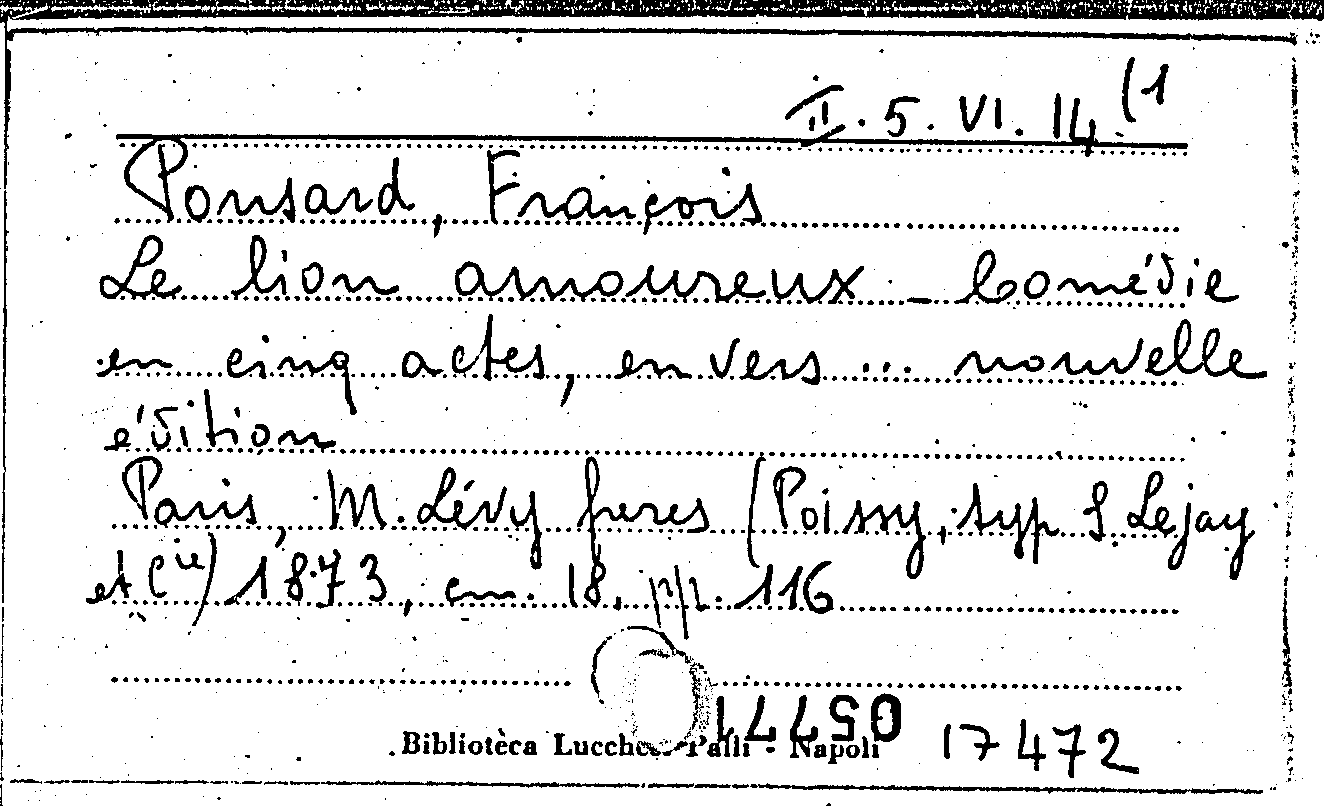 II. 5. VI. 14 (1
Ponsard, François
Le lion amoureux - Comédie
en cinq actes, en vers ... nouvelle
édition
Paris, M. Lévy freres (Poissy, typ S Lejay
et Cie) 1873, cm. 18, pp. 116
05771
Bibliotèca Lucchesi Palli - Napoli 17472